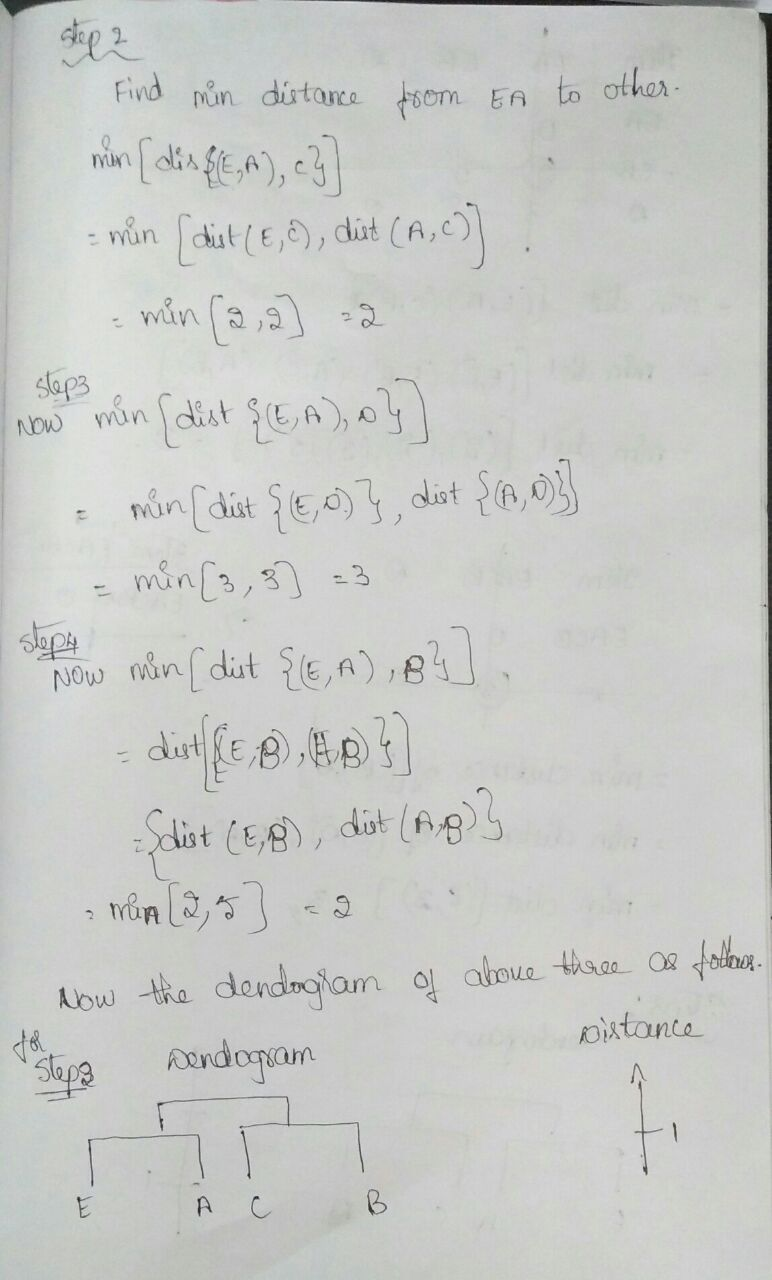 step 2
Find min distance from EA to other.
min [dis{(E,A), C}]
= min [dist(E,C), dist(A,C)]
= min [2,2] = 2
step3
Now min [dist {(E,A), D}]
= min [dist {(E,D)}, dist {(A,D)}]
= min [3, 3] = 3
step4
Now min [dist {(E,A), B}]
= dist[{(E,B), (A,B)}]
= {dist (E,B), dist (A,B)}
= min [2,5] = 2
Now the dendogram of above three as follows.
for step2
Dendogram
Distance
1
E A C B